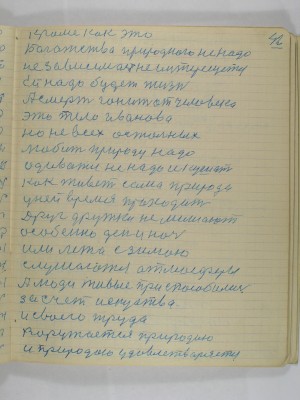 42
Кроме как это
Богатства природного не надо
независимая неимущему
ей надо будет жизн
А смерт гонит от человека
это тило иванова
но не всех остолных
любит природу надо
одевати не надо и кушат
Как живет сама природа
у ней время проходит
Друг дружки не мешают
особенно ден и ноч
или лета с зимою
слушает атмосферы
А люди живые приспособилис
за счет искуства
и своего труда
Воружается природаю
и природаю удовлетваряету